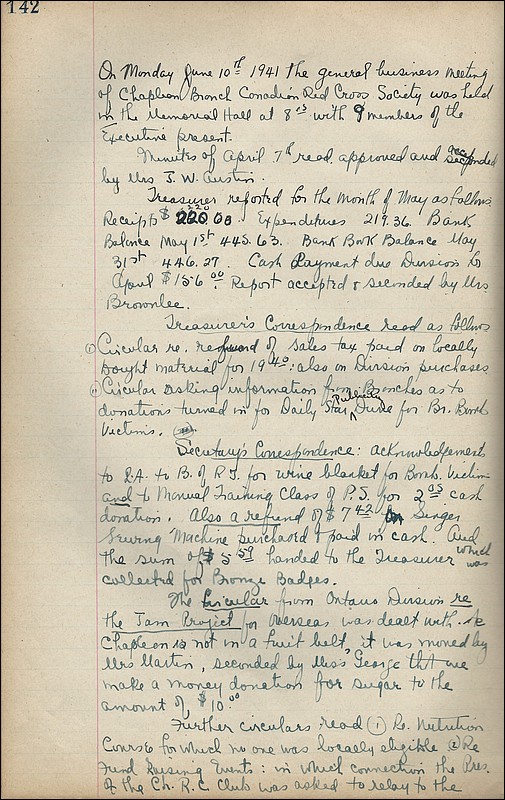 142
On Monday June 10th 1941 the general business meeting
of Chapleau Branch Canadian Red Cross Society was held
in the Memorial Hall at 8 15 with 9 members of the
Executive present.
Minutes of April 7th read, approved and seconded
by Mrs J. W. Austin.
Treasurer reported for the month of May as follows
Receipts $ 220 00. Expenditures 219.36. Bank
Balance May 1st 445.63. Bank Book Balance May
31st 446.27. Cash Payment due Division to
April $156 00. Report accepted & seconded by Mrs.
Brownlee.
Treasurer's Correspondence read as follows
Circular re. refund of sales tax paid on locally
bought material for 1940: also on Division purchases
Circular asking information from Branches as to
donations turned in for Daily Star Publicity Drive for Br. Bomb
Victims.
Secretary's Correspondence: acknowledgement
to L.A. to B. of R.T. for wine blanket for Bomb. Victims
and to Manual Training Class of P.S. for 2 05 cash
donation. Also a refund of $7 42 on Singer
Sewing Machine purchased & paid in cash. And
the sum of $5 59 handed to the Treasurer which was
collected for Bronze Badges.
The Circular from Ontario Division re
the Jam Project for Overseas was dealt with. As
Chapleau is not in a fruit belt, it was moved by
Mrs Martin, seconded by Miss George that we
make a money donation for sugar to the
amount of $10.00
Further circulars read (1) Re. Nutrition
Course for which no one was locally eligible (2) Re
Fund Raising Events: in which connection the Pres.
of the Ch. R. C. Club was asked to relay to the